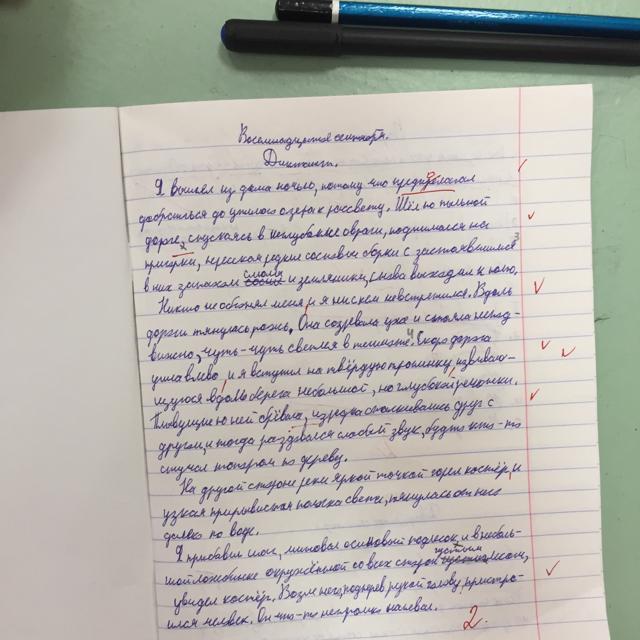 Восемнадцатое сентября.
Диктант.
Я вышел из дома ночью, потому что предпологал
добраться до утилого озера к рассвету. Шёл по пыльной
дороге, спускаясь в неглубокие овраги, поднимался на
пригорки, пересекая редкие сосновые борки с застоявшимся
в них запахом смолы и земляники, снова выходил к полю.
Никто не обгонял меня и я ни с кем не встретился. Вдоль
дороги тянулась рожь. Она созревала уже и стояла непод-
вижно, чуть-чуть светлея в темноте. Скоро дорога
ушла влево, и я вступил на твёрдую тропинку, извиваю-
щуюся вдоль берега небольшой, но глубокой речонки.
Плывущие по ней брёвна, изредка сталкивались друг с
другом, и тогда раздавался слабый звук, будто кто-то
стучал топором по дереву.
На другой стороне реки яркой точкой горел костёр, и
узкая прерывистая полоска света, тянулась от него
далеко по воде.
Я прибавил шаг, миновал осиновый подлесок, и в неболь-
шой ложбинке окружённой со всех сторон густым лесом,
увидел костёр. Возле него, подперев рукой голову, пристро-
ился человек. Он что-то негромко напевал.
2.